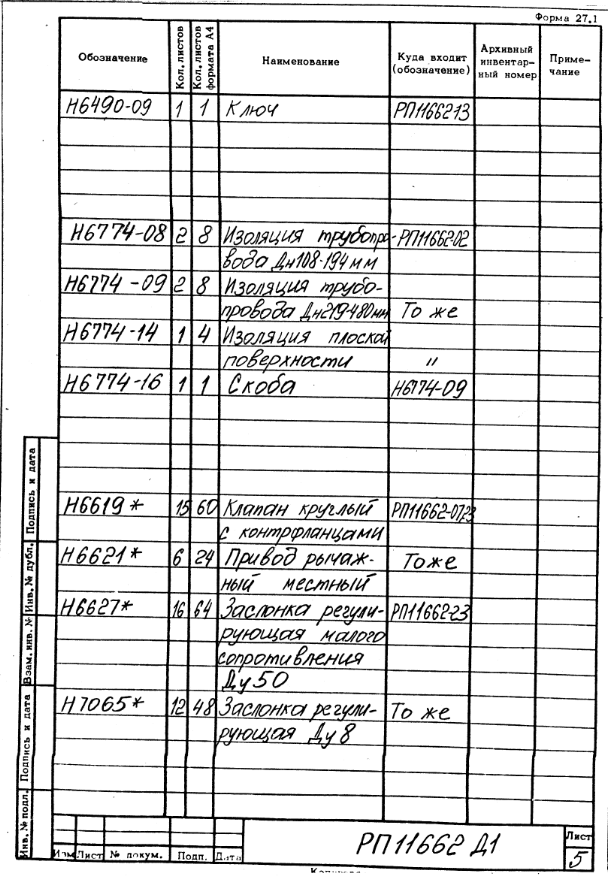 Форма 27.1
Обозначение Кол.листов Кол.листов формата А4 Наименование Куда входит (обозначение) Архивный инвентар- ный номер Приме- чание
Н6490-09 1 1 Ключ РП11662-13
Н6774-08 2 8 Изоляция трубопро- РП11662-02
вода Дн108-194 мм
Н6774-09 2 8 Изоляция трубо-
провода Дн219-480мм То же
Н6774-14 1 4 Изоляция плоской
поверхности "
Н6774-16 1 1 Скоба Н6774-09
Н6619* 15 60 Клапан круглый РП11662-07,23
с контрфланцами
Н6621* 6 24 Привод рычаж- То же
ный местный
Н6627* 16 64 Заслонка регули- РП11662-23
рующая малого
сопротивления
Ду50
Н7065* 12 48 Заслонка регули- То же
рующая Ду8
Подпись и дата
Инв.№ дубл.
Взам. инв. №
Подпись и дата
Инв. № подл.
Изм Лист № докум. Подп. Дата
РП11662 Д1
Лист
5